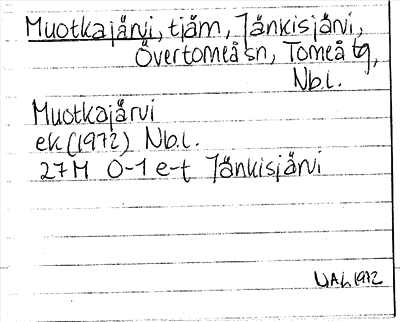 Muotkajärvi, tjärn, Jänkisjärvi,
Övertorneå sn, Torneå tg,
Nb.l.
Muotkajärvi
ek (1972) Nb.l.
27M 0-1 e-t Jänkisjärvi
UAL 1972